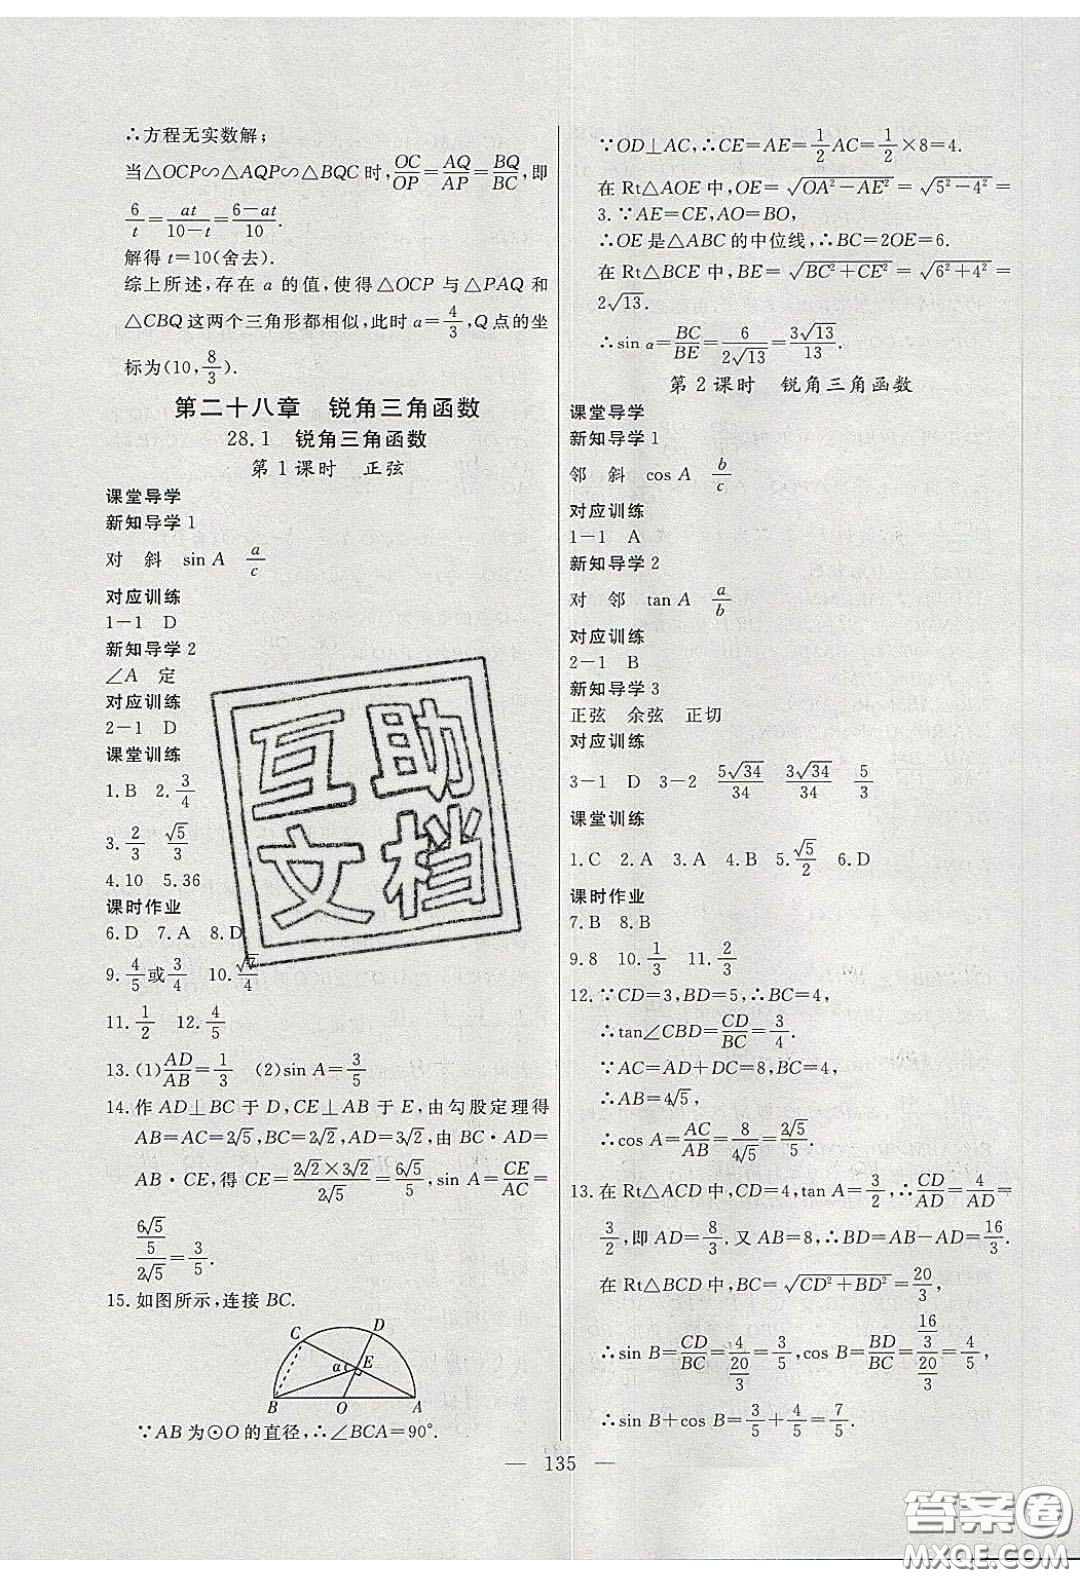 ∴方程无实数解;
当△OCP∽△AQP∽△BQC时,OC/OP=AQ/AP=BQ/BC,即
6/t=at/(10-t)=(6-at)/10.
解得t=10(舍去).
综上所述,存在a的值,使得△OCP与△PAQ和
△CBQ这两个三角形都相似,此时a=4/3,Q点的坐
标为(10,8/3).
第二十八章 锐角三角函数
28.1 锐角三角函数
第1课时 正弦
课堂导学
新知导学1
对 斜 sin A a/c
对应训练
1-1 D
新知导学2
∠A 定
对应训练
2-1 D
课堂训练
1.B 2.3/4
3.2/3 √5/3
4.10 5.36
课时作业
6.D 7.A 8.D
9.4/5或3/4 10.√7/4
11.1/2 12.4/5
13.(1)AD/AB=1/3 (2)sin A=3/5
14.作AD⊥BC于D,CE⊥AB于E,由勾股定理得
AB=AC=2√5,BC=2√2,AD=3√2,由BC·AD=
AB·CE,得CE=(2√2×3√2)/(2√5)=6√5/5,sin A=CE/AC=
(6√5/5)/(2√5)=3/5.
15.如图所示,连接BC.
C D
E
α
B O A
∵AB为⊙O的直径,∴∠BCA=90°.
∵OD⊥AC,∴CE=AE=1/2AC=1/2×8=4.
在Rt△AOE中,OE=√(OA²-AE²)=√(5²-4²)=
3.∵AE=CE,AO=BO,
∴OE是△ABC的中位线,∴BC=2OE=6.
在Rt△BCE中,BE=√(BC²+CE²)=√(6²+4²)=
2√13.
∴sin α=BC/BE=6/(2√13)=3√13/13.
第2课时 锐角三角函数
课堂导学
新知导学1
邻 斜 cos A b/c
对应训练
1-1 A
新知导学2
对 邻 tan A a/b
对应训练
2-1 B
新知导学3
正弦 余弦 正切
对应训练
3-1 D 3-2 5√34/34 3√34/34 5/3
课堂训练
1.C 2.A 3.A 4.B 5.√5/2 6.D
课时作业
7.B 8.B
9.8 10.1/3 11.2/3
12.∵CD=3,BD=5,∴BC=4,
∴tan∠CBD=CD/BC=3/4.
∵AC=AD+DC=8,BC=4,
∴AB=4√5,
∴cos A=AC/AB=8/(4√5)=2√5/5.
13.在Rt△ACD中,CD=4,tan A=3/2,∴CD/AD=4/AD=
3/2,即AD=8/3.又AB=8,∴BD=AB-AD=16/3.
在Rt△BCD中,BC=√(CD²+BD²)=20/3,
∴sin B=CD/BC=4/(20/3)=3/5,cos B=BD/BC=(16/3)/(20/3)=4/5,
∴sin B+cos B=3/5+4/5=7/5.
— 135 —
互助
文档
答案圈
MXQE.COM